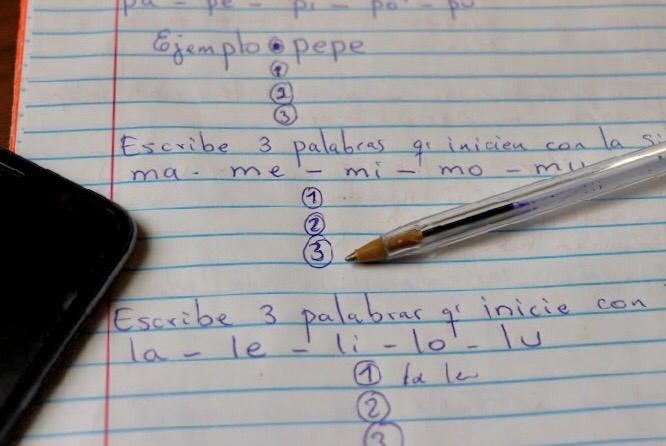 pa - pe - pi - po - pu
Ejemplo • pepe
①
②
③
Escribe 3 palabras q' inicien con la
ma - me - mi - mo - mu
①
②
③
Escribe 3 palabras q' inicie con
la - le - li - lo - lu
①
②
③